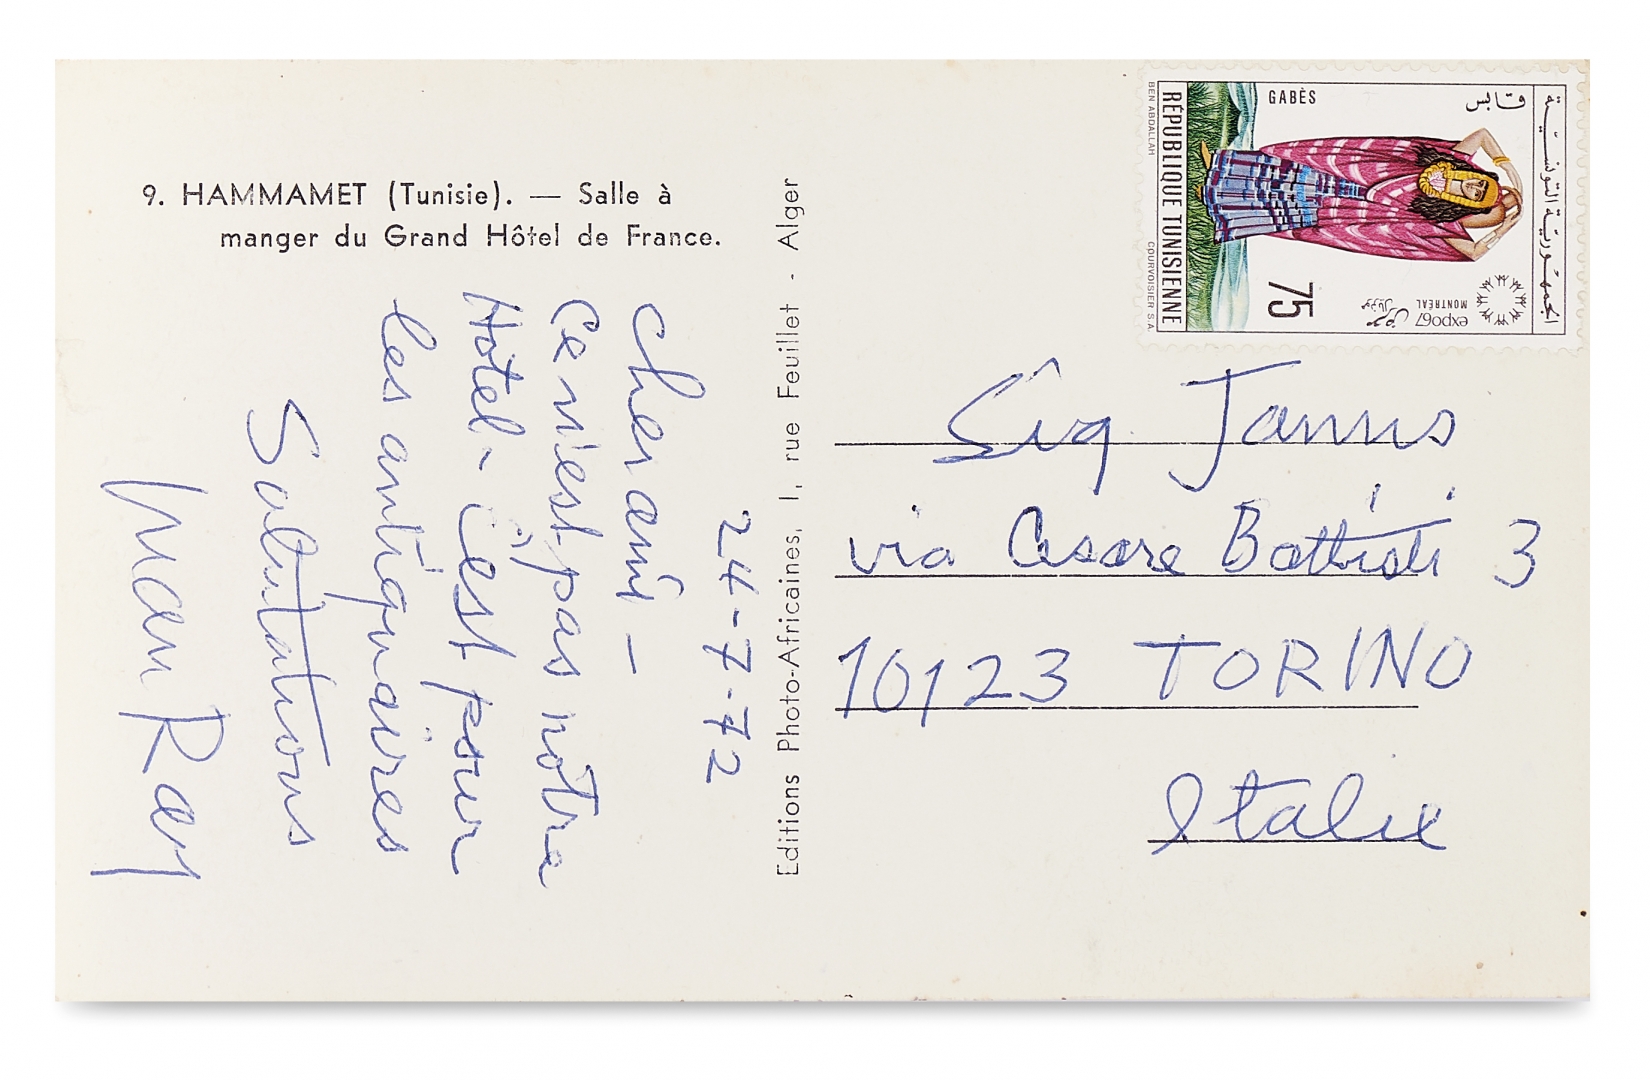 9. HAMMAMET (Tunisie). — Salle à
manger du Grand Hôtel de France.
24-7-72
cher ami —
Ce n'est pas notre
Hôtel - C'est pour
les antiquaires
Salutations
Man Ray
Editions Photo-Africaines, 1, rue Feuillet - Alger
GABÈS
قابس
الجمهورية التونسية
RÉPUBLIQUE TUNISIENNE
BEN ABDALLAH
COURVOISIER S.A.
75
expo67
MONTRÉAL
معرض
مونتريال
Sig Jannus
via Cesare Battisti 3
10123 TORINO
Italie